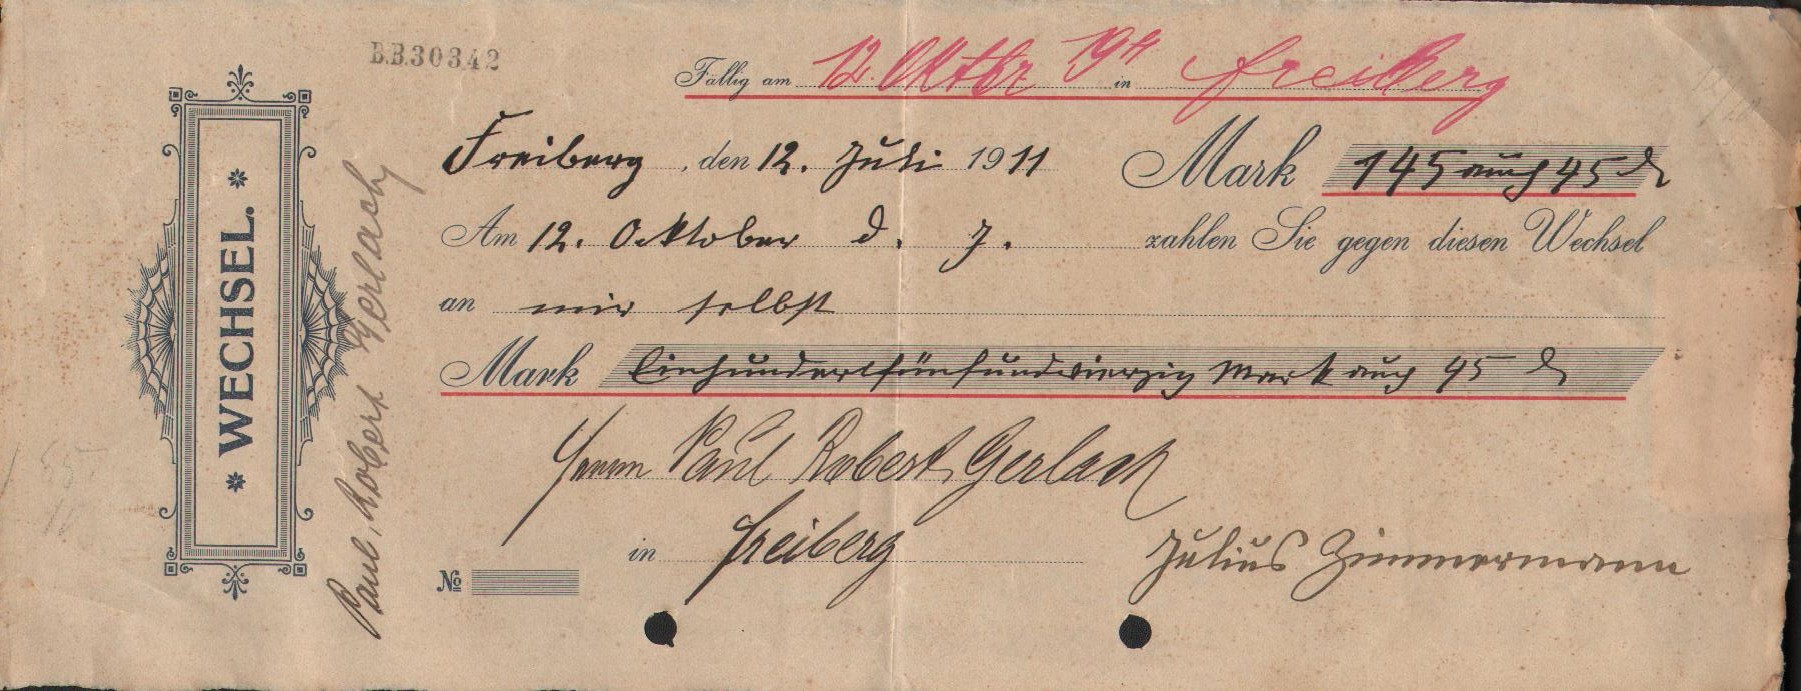 B.B.30342
Fällig am 12. Oktbr 1911 in Freiberg
Freiberg, den 12. Juli 1911 Mark 145 auch 45 ₰
Am 12. Oktober d. J. zahlen Sie gegen diesen Wechsel
an mir selbst
Mark Einhundertfünfundvierzig Mark auch 45 ₰
Herrn Paul Robert Gerlach
in Freiberg
Julius Zimmermann
№
* WECHSEL. *
Paul Robert Gerlach